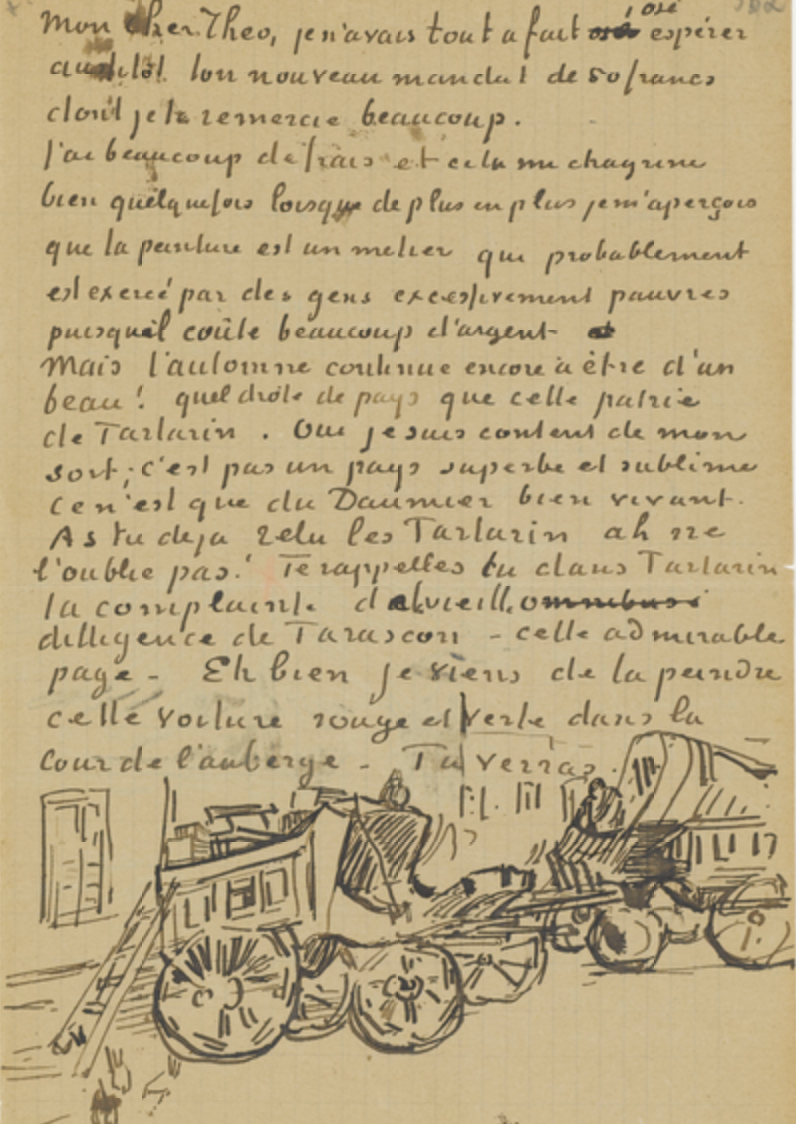 Mon cher Theo, je n'avais tout a fait osé espérer
aussitôt ton nouveau mandat de 50 francs
dont je te remercie beaucoup.
J'ai beaucoup de frais et cela me chagrine
bien quelquefois lorsque de plus en plus je m'aperçois
que la peinture est un metier qui probablement
est exercé par des gens excessivement pauvres
puisqu'il coûte beaucoup d'argent
Mais l'automne continue encore à être d'un
beau! quel drôle de pays que cette patrie
de Tartarin. Oui je suis content de mon
sort; c'est pas un pays superbe et sublime
ce n'est que du Daumier bien vivant.
As tu deja relu les Tartarin ah ne
l'oublie pas! Te rappelles tu dans Tartarin
la complainte de la vieille omnibus
dilligence de Tarascon - cette admirable
page - Eh bien je viens de la peindre
cette voiture rouge et verte dans la
cour de l'auberge - Tu verras.